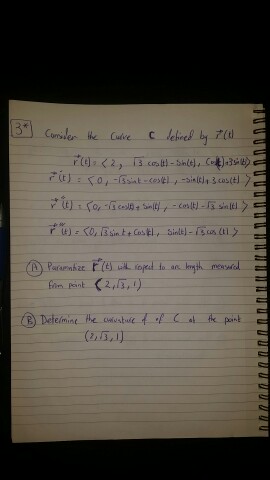 3*
Consider the curve C defined by r⃗(t)
r⃗(t) = < 2, √3 cos(t) - sin(t), Cos(t)+3sin(t)>
r⃗'(t) = < 0, -√3 sint - cos(t), -sin(t)+3 cos(t) >
r⃗''(t) = <0, -√3 cos(t) + sin(t), -cos(t) - √3 sin(t) >
r⃗'''(t) = <0, √3 sint + cos(t), sin(t) - √3 cos(t) >
(A) Parametize r⃗(t) with respect to arc length measured
from point (2,√3,1)
(B) Determine the curvature of C at the point
(2,√3,1)